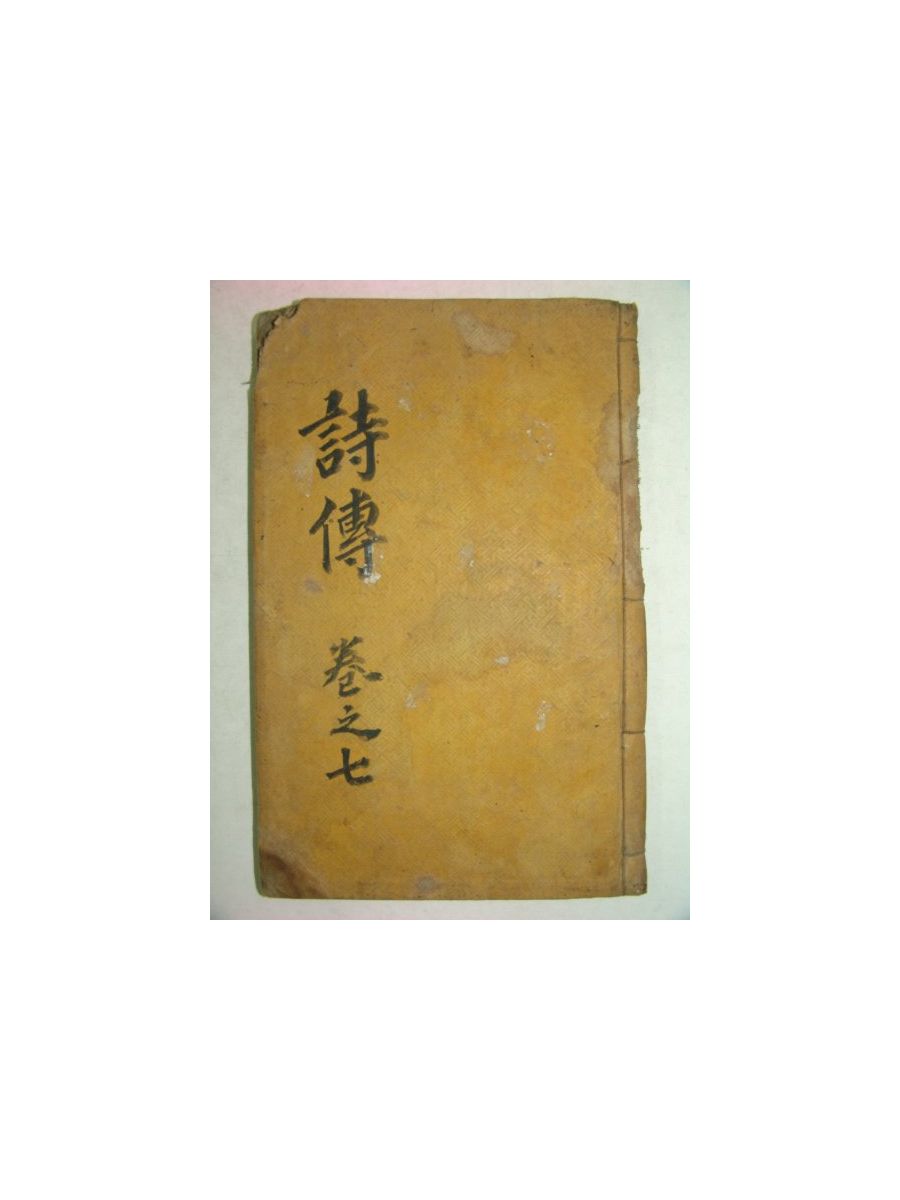 詩傳 卷之七